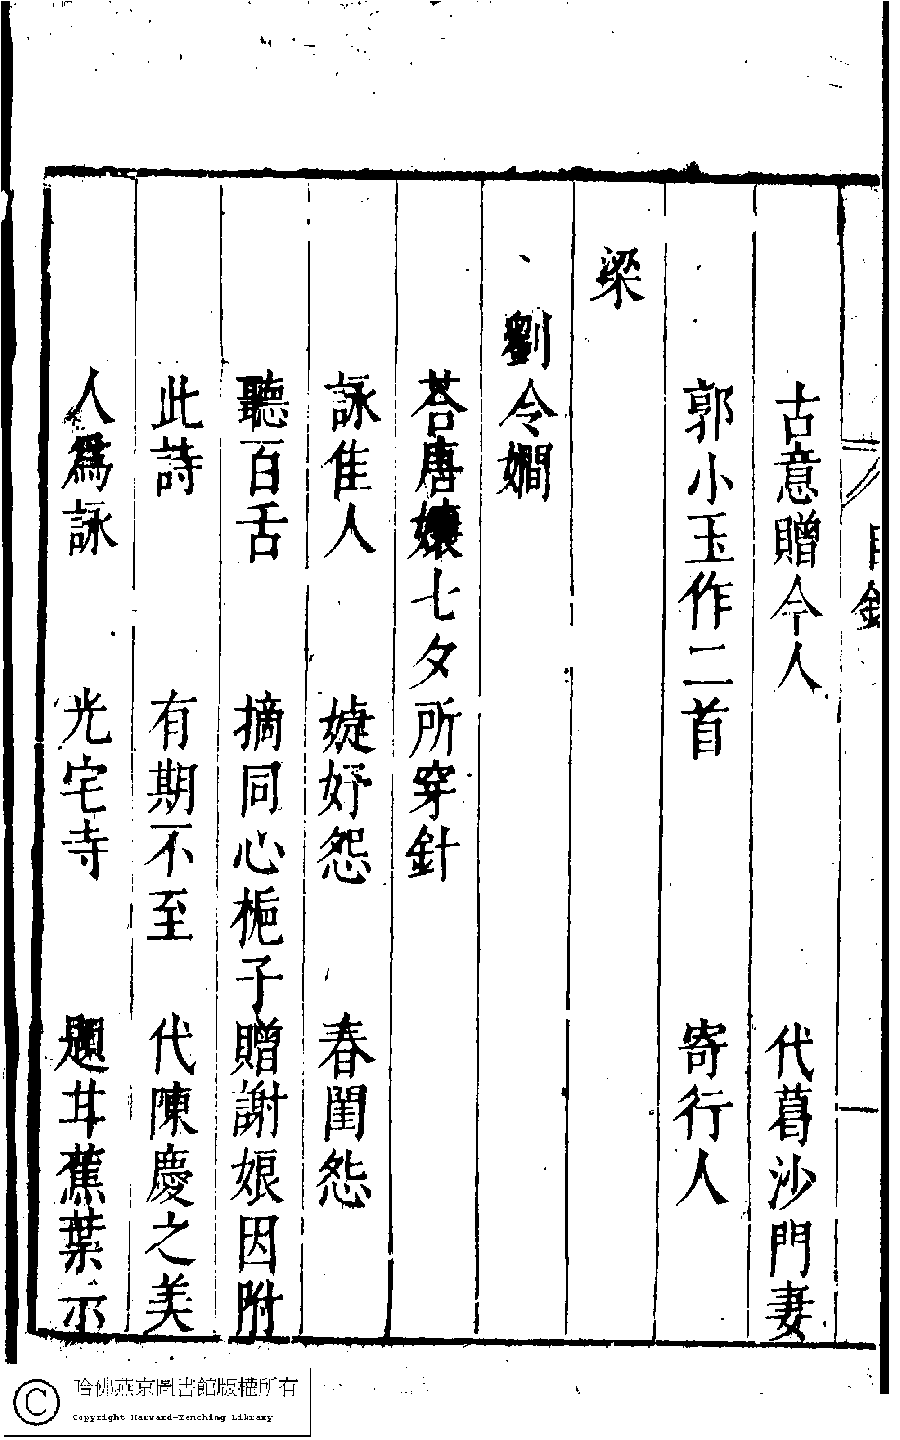 目錄 一
古意贈今人 代葛沙門妻
郭小玉作二首 寄行人
梁
劉令嫺
荅唐孃七夕所穿針
詠佳人 婕妤怨 春閨怨
聽百舌 摘同心梔子贈謝娘因附
此詩 有期不至 代陳慶之美
人爲詠 光宅寺 題甘蕉葉示
哈佛燕京圖書館版權所有
Copyright Harvard-Yenching Library